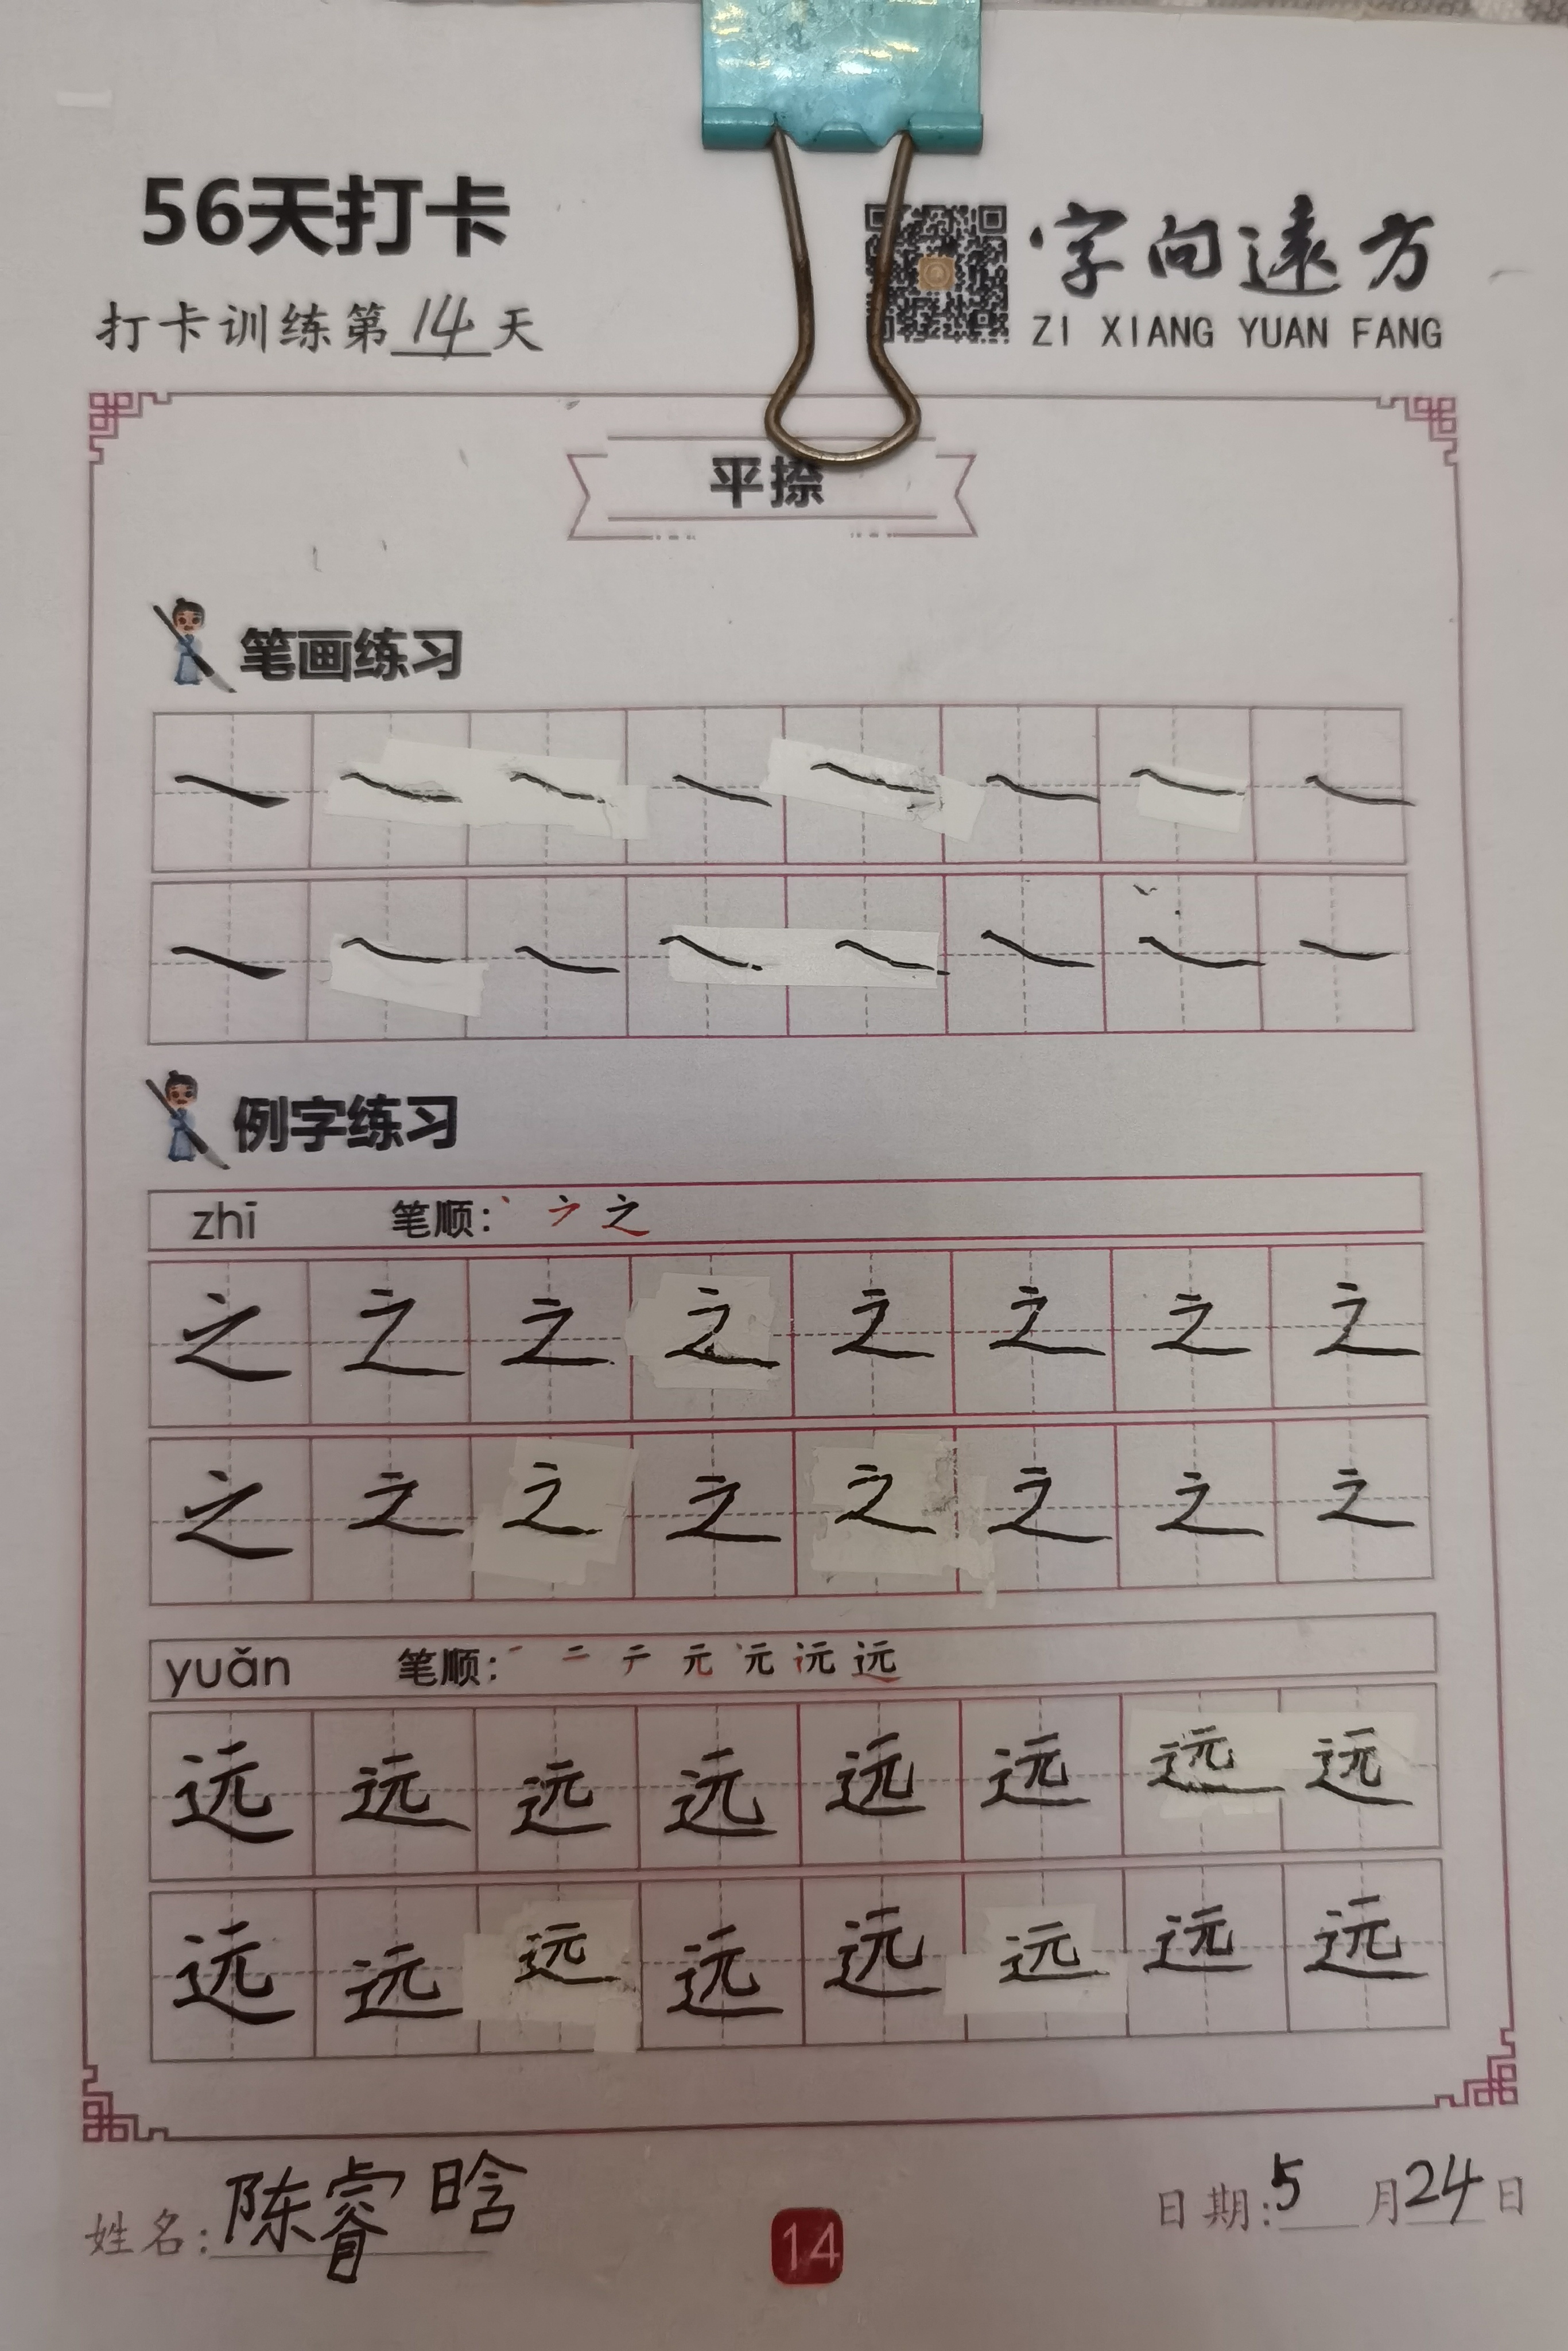 56天打卡
打卡训练第14天
字向遠方
ZI XIANG YUAN FANG
平捺
笔画练习
例字练习
zhī 笔顺: 丶 ㇇ 之
之 之 之 之 之 之 之 之
之 之 之 之 之 之 之 之
yuǎn 笔顺: 一 二 テ 元 元 远 远
远 远 远 远 远 远 远 远
远 远 远 远 远 远 远 远
姓名: 陈睿晗
14
日期: 5月24日